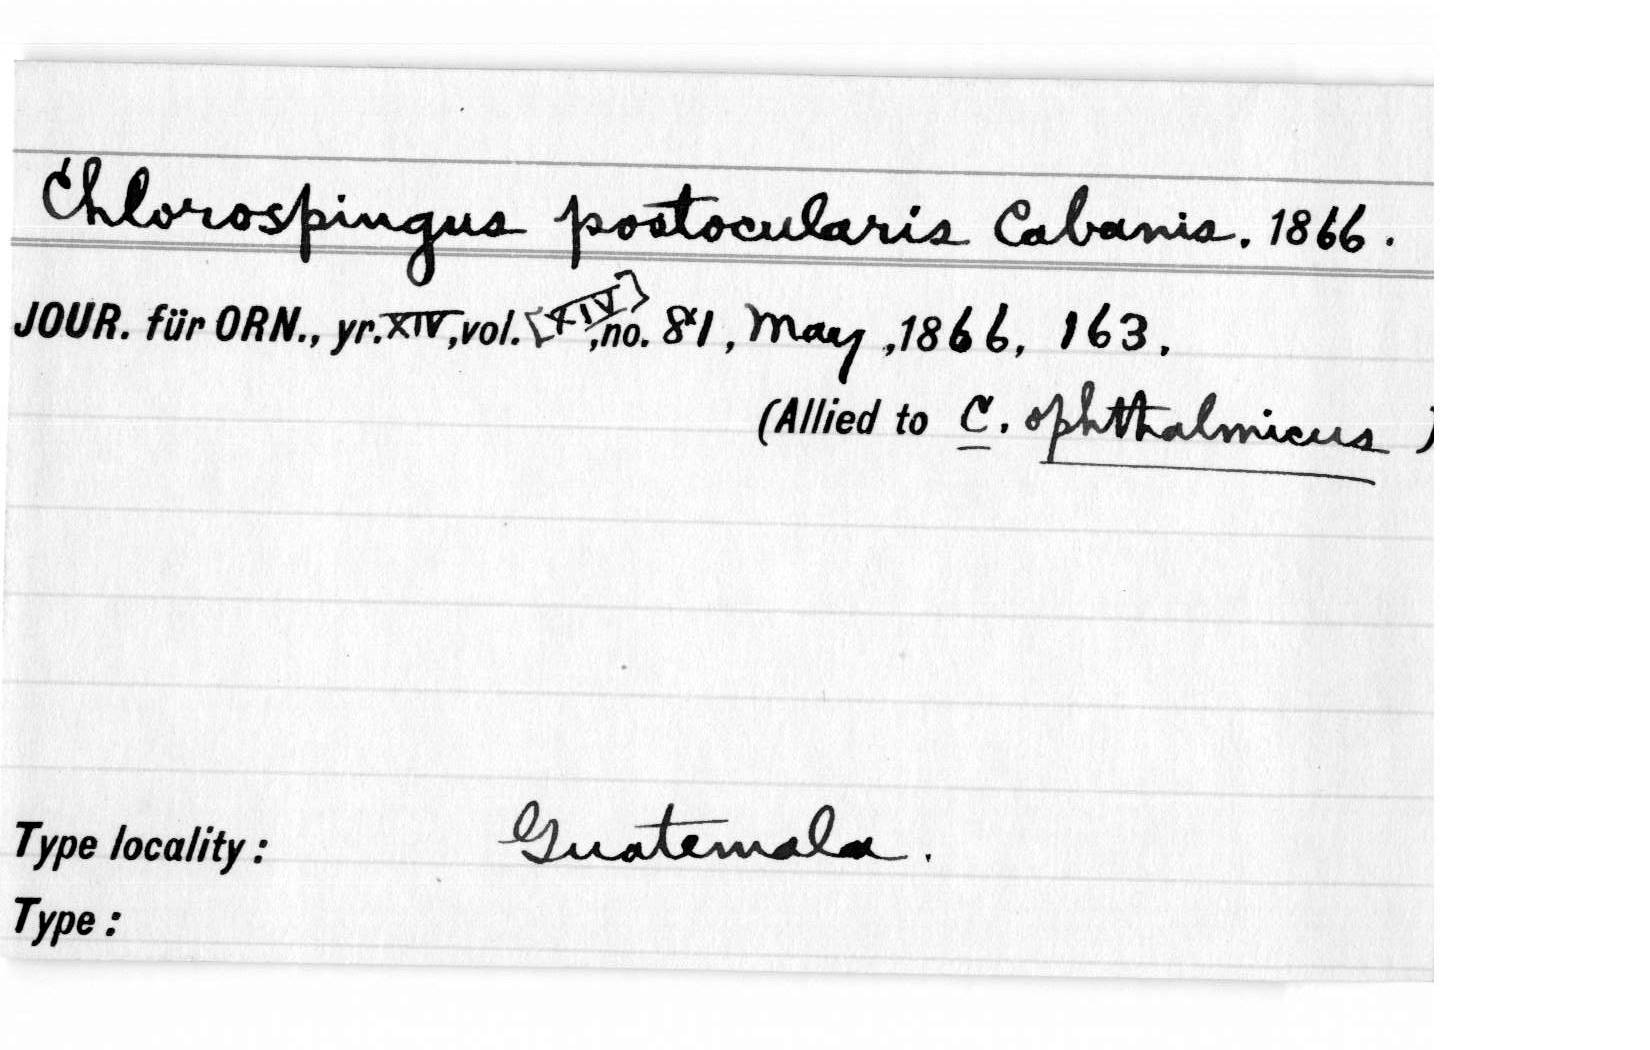 Chlorospingus postocularis Cabanis. 1866.
JOUR. für ORN., yr.XIV,vol.[XIV],no. 81, May ,1866, 163.
(Allied to C. ophthalmicus )
Type locality: Guatemala.
Type: